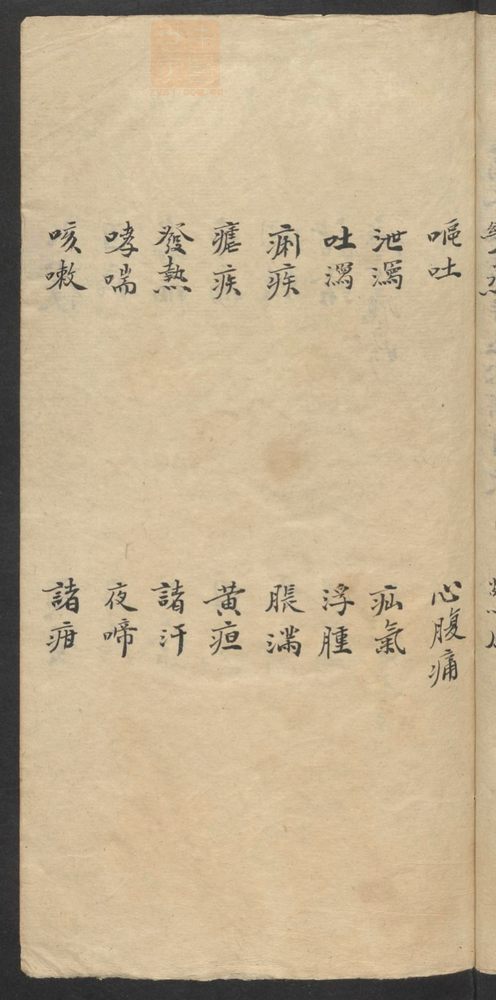 嘔吐
心腹痛
泄瀉
疝氣
吐瀉
浮腫
痢疾
脹滿
瘧疾
黄疸
發熱
諸汗
哮喘
夜啼
咳嗽
諸疳